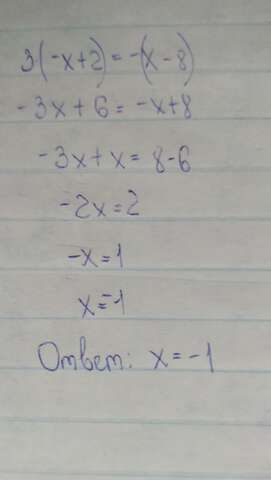 3(-x+2)=-(x-8)
-3x+6=-x+8
-3x+x=8-6
-2x=2
-x=1
x=-1
Ответ: x=-1